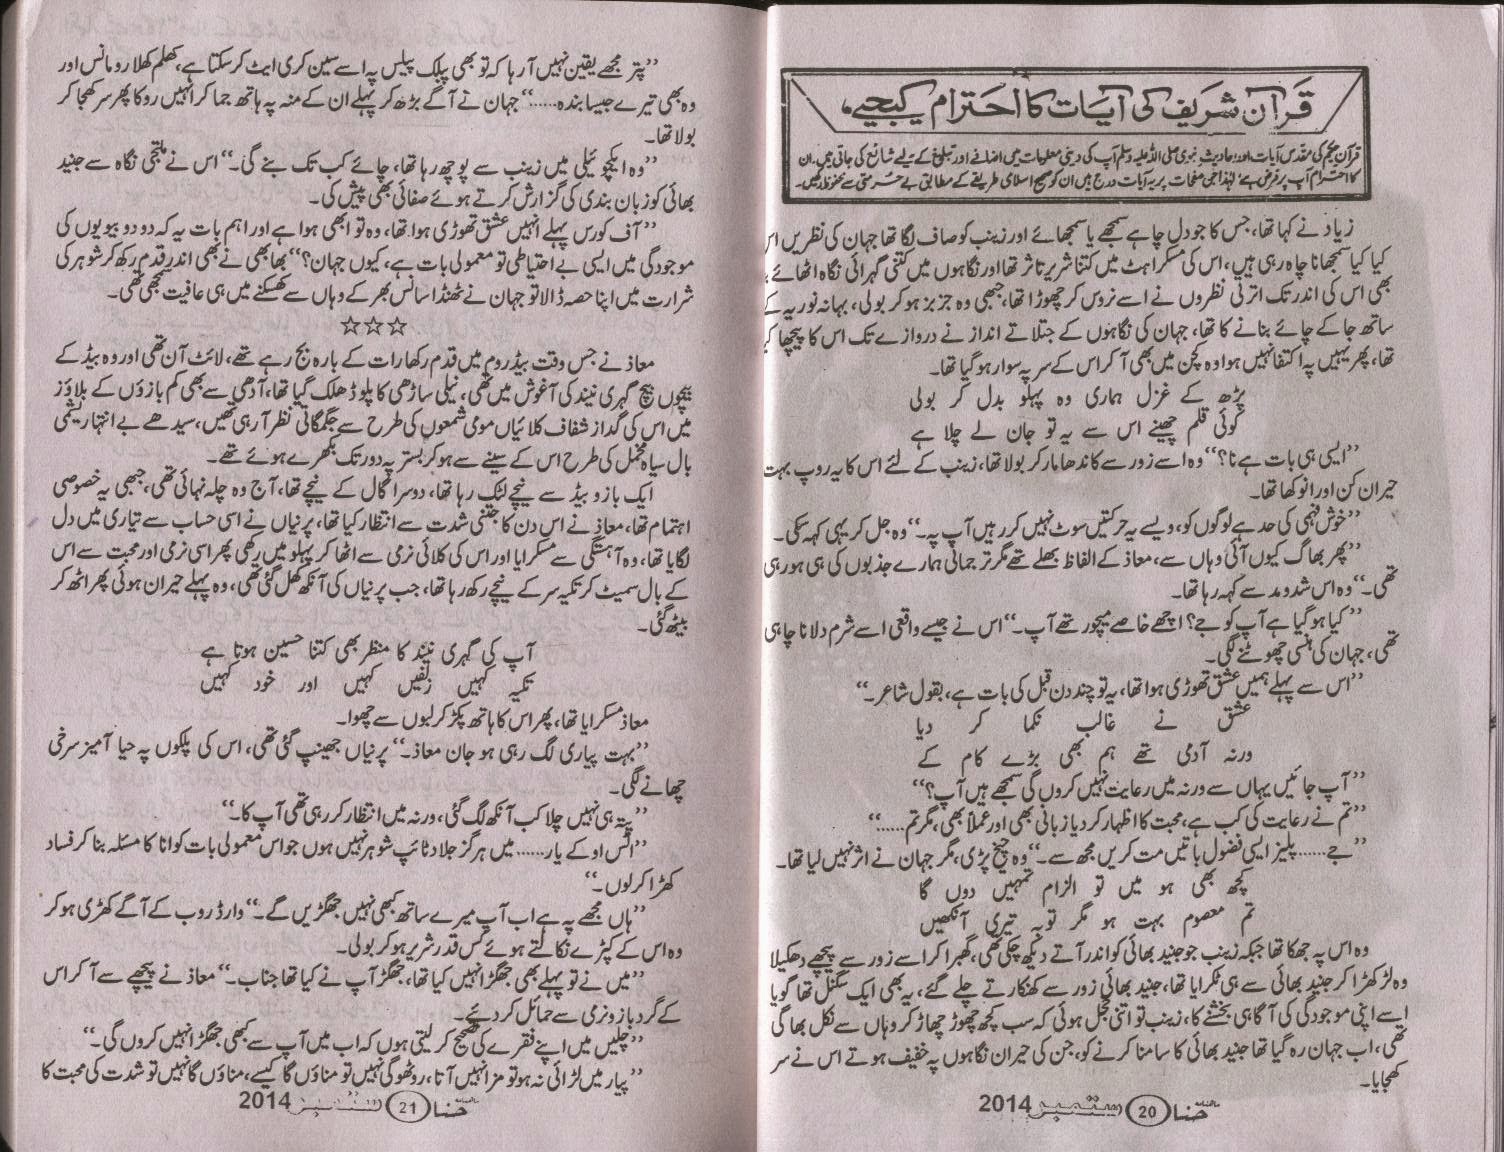 قرآن شریف کی آیات کا احترام کیجیے،
قرآن حکیم کی مقدس آیات اور احادیث نبوی صلی اللہ علیہ وسلم آپ کی دینی معلومات میں اضافے اور تبلیغ کے لیے شائع کی جاتی ہیں۔ ان
کا احترام آپ پر فرض ہے لہٰذا جن صفحات پر یہ آیات درج ہیں ان کو صحیح اسلامی طریقے کے مطابق بے حرمتی سے محفوظ رکھیں۔
زیاد نے کہا تھا، جس کا جو دل چاہے سمجھے یا سمجھائے اور زینب کو صاف لگا تھا جہان کی نظریں اس
کیا کیا سمجھانا چاہ رہی ہیں، اس کی مسکراہٹ میں کتنا شریر تاثر تھا اور نگاہوں میں کتنی گہرائی نگاہ اٹھائے
بھی اس کی اندر تک اترتی نظروں نے اسے نروس کر چھوڑا تھا، جبھی وہ جزبز ہو کر بولی، بہانہ نوریہ کے
ساتھ جا کے چائے بنانے کا تھا، جہان کی نگاہوں کے جتلاتے انداز نے دروازے تک اس کا پیچھا کیا
تھا، پھر یہیں پہ اکتفا نہیں ہوا وہ کچن میں بھی آ کر اس کے سر پہ سوار ہو گیا تھا۔
پڑھ کے غزل ہماری وہ پہلو بدل کر بولی
کوئی قلم چھینے اس سے یہ تو جان لے چلا ہے
’’ایسی ہی بات ہے نا؟‘‘ وہ اسے زور سے کاندھا مار کر بولا تھا، زینب کے لئے اس کا یہ روپ بہت
حیران کن اور انوکھا تھا۔
’’خوش فہمی کی حد ہے لوگوں کو، ویسے یہ حرکتیں سوٹ نہیں کر رہیں آپ پہ۔‘‘ وہ جل کر یہی کہہ سکی۔
’’پھر بھاگ کیوں آئی وہاں سے، معاذ کے الفاظ بھلے تھے مگر ترجمانی ہمارے جذبوں کی ہی ہو رہی
تھی۔‘‘ وہ اس شد و مد سے کہہ رہا تھا۔
’’کیا ہو گیا ہے آپ کو جے؟ اچھے خاصے میچور تھے آپ۔‘‘ اس نے جیسے واقعی اسے شرم دلانا چاہی
تھی، جہان کی ہنسی چھوٹنے لگی۔
’’اس سے پہلے ہمیں عشق تھوڑی ہوا تھا، یہ تو چند دن قبل کی بات ہے، بقول شاعر۔‘‘
عشق نے غالب نکما کر دیا
ورنہ آدمی تھے ہم بھی بڑے کام کے
’’آپ جائیں یہاں سے ورنہ میں رعایت نہیں کروں گی سمجھے ہیں آپ؟‘‘
’’تم نے رعایت کی کب ہے، محبت کا اظہار کر دیا زبانی بھی اور عملاً بھی، مگر تم.....‘‘
’’جے...... پلیز ایسی فضول باتیں مت کریں مجھ سے۔‘‘ وہ چیخ پڑی، مگر جہان نے اثر نہیں لیا تھا۔
کچھ بھی ہو میں تو الزام تمہیں دوں گا
تم معصوم بہت ہو مگر توبہ تیری آنکھیں
وہ اس پہ جھکا تھا جبکہ زینب جو جنید بھائی کو اندر آتے دیکھ چکی تھی، گھبرا کر اسے زور سے پیچھے دھکیلا
وہ لڑکھڑا کر جنید بھائی سے ہی ٹکرایا تھا، جنید بھائی زور سے کھنکارتے چلے گئے، یہ بھی ایک سگنل تھا گویا
اسے اپنی موجودگی کی آگاہی بخشنے کا، زینب تو اتنی خجل ہوئی کہ سب کچھ چھوڑ چھاڑ کر وہاں سے نکل بھاگی
تھی، اب جہان رہ گیا تھا جنید بھائی کا سامنا کرنے کو، جن کی حیران نگاہوں پہ خفیف ہوتے اس نے سر
کھجایا۔
ماہنامہ حنا 20 ستمبر 2014
’’پتر مجھے یقین نہیں آ رہا کہ تو بھی پبلک پلیس پہ اسے سین کری ایٹ کر سکتا ہے، کھلم کھلا رومانس اور
وہ بھی تیرے جیسا بندہ.....‘‘ جہان نے آگے بڑھ کر پہلے ان کے منہ پہ ہاتھ جما کر انہیں روکا پھر سر کھجا کر
بولا تھا۔
’’وہ ایکچوئیلی میں زینب سے پوچھ رہا تھا، چائے کب تک بنے گی۔‘‘ اس نے ملتجی نگاہ سے جنید
بھائی کو زبان بندی کی گزارش کرتے ہوئے صفائی بھی پیش کی۔
’’آف کورس پہلے انہیں عشق تھوڑی ہوا تھا، وہ تو ابھی ہوا ہے اور اہم بات یہ کہ دو دو بیویوں کی
موجودگی میں ایسی بے احتیاطی تو معمولی بات ہے، کیوں جہان؟‘‘ بھابھی نے بھی اندر قدم رکھ کر شوہر کی
شرارت میں اپنا حصہ ڈالا تو جہان نے ٹھنڈا سانس بھر کے وہاں سے کھسکنے میں ہی عافیت سمجھی تھی۔
☆☆☆
معاذ نے جس وقت بیڈ روم میں قدم رکھا رات کے بارہ بج رہے تھے، لائٹ آن تھی اور وہ بیڈ کے
بیچوں بیچ گہری نیند کی آغوش میں تھی، نیلی ساڑھی کا پلو ڈھلک گیا تھا، آدھی سے بھی کم بازوؤں کے بلاؤز
میں اس کی گداز شفاف کلائیاں مومی شمعوں کی طرح سے جگمگاتی نظر آ رہی تھیں، سیدھے بے انتہا ریشمی
بال سیاہ مخمل کی طرح اس کے سینے سے ہو کر بستر پہ دور تک بکھرے ہوئے تھے۔
ایک بازو بیڈ سے نیچے لٹک رہا تھا، دوسرا گال کے نیچے تھا، آج وہ چلہ نہائی تھی، جبھی یہ خصوصی
اہتمام تھا، معاذ نے اس دن کا جتنی شدت سے انتظار کیا تھا، پرنیاں نے اسی حساب سے تیاری میں دل
لگایا تھا، وہ آہستگی سے مسکرایا اور اس کی کلائی نرمی سے اٹھا کر پہلو میں رکھی پھر اسی نرمی اور محبت سے اس
کے بال سمیٹ کر تکیہ سر کے نیچے رکھ رہا تھا، جب پرنیاں کی آنکھ کھل گئی تھی، وہ پہلے حیران ہوئی پھر اٹھ کر
بیٹھ گئی۔
آپ کی گہری نیند کا منظر بھی کتنا حسین ہوتا ہے
تکیہ کہیں زلفیں کہیں اور خود کہیں
معاذ مسکرایا تھا، پھر اس کا ہاتھ پکڑ کر لبوں سے چھوا۔
’’بہت پیاری لگ رہی ہو جان معاذ۔‘‘ پرنیاں جھینپ گئی تھی، اس کی پلکوں پہ حیا آمیز سرخی
چھانے لگی۔
’’پتہ ہی نہیں چلا کب آنکھ لگ گئی، ورنہ میں انتظار کر رہی تھی آپ کا۔‘‘
’’اٹس او کے یار...... میں ہرگز جلاد ٹائپ شوہر نہیں ہوں جو اس معمولی بات کو انا کا مسئلہ بنا کر فساد
کھڑا کر لوں۔‘‘
’’ہاں مجھے پہ ہے اب آپ میرے ساتھ کبھی نہیں جھگڑیں گے۔‘‘ وارڈ روب کے آگے کھڑی ہو کر
وہ اس کے کپڑے نکالتے ہوئے کس قدر شریر ہو کر بولی۔
’’میں نے تو پہلے بھی جھگڑا نہیں کیا تھا، جھگڑ آپ نے کیا تھا جناب۔‘‘ معاذ نے پیچھے سے آ کر اس
کے گرد بازو نرمی سے حمائل کر دئیے۔
’’چلیں میں اپنے فقرے کی تصحیح کر لیتی ہوں کہ اب میں آپ سے کبھی جھگڑا نہیں کروں گی۔‘‘
’’پیار میں لڑائی نہ ہو تو مزا نہیں آتا، روٹھو گی نہیں تو مناؤں گا کیسے، مناؤں گا نہیں تو شدت کی محبت کا
ماہنامہ حنا 21 ستمبر 2014